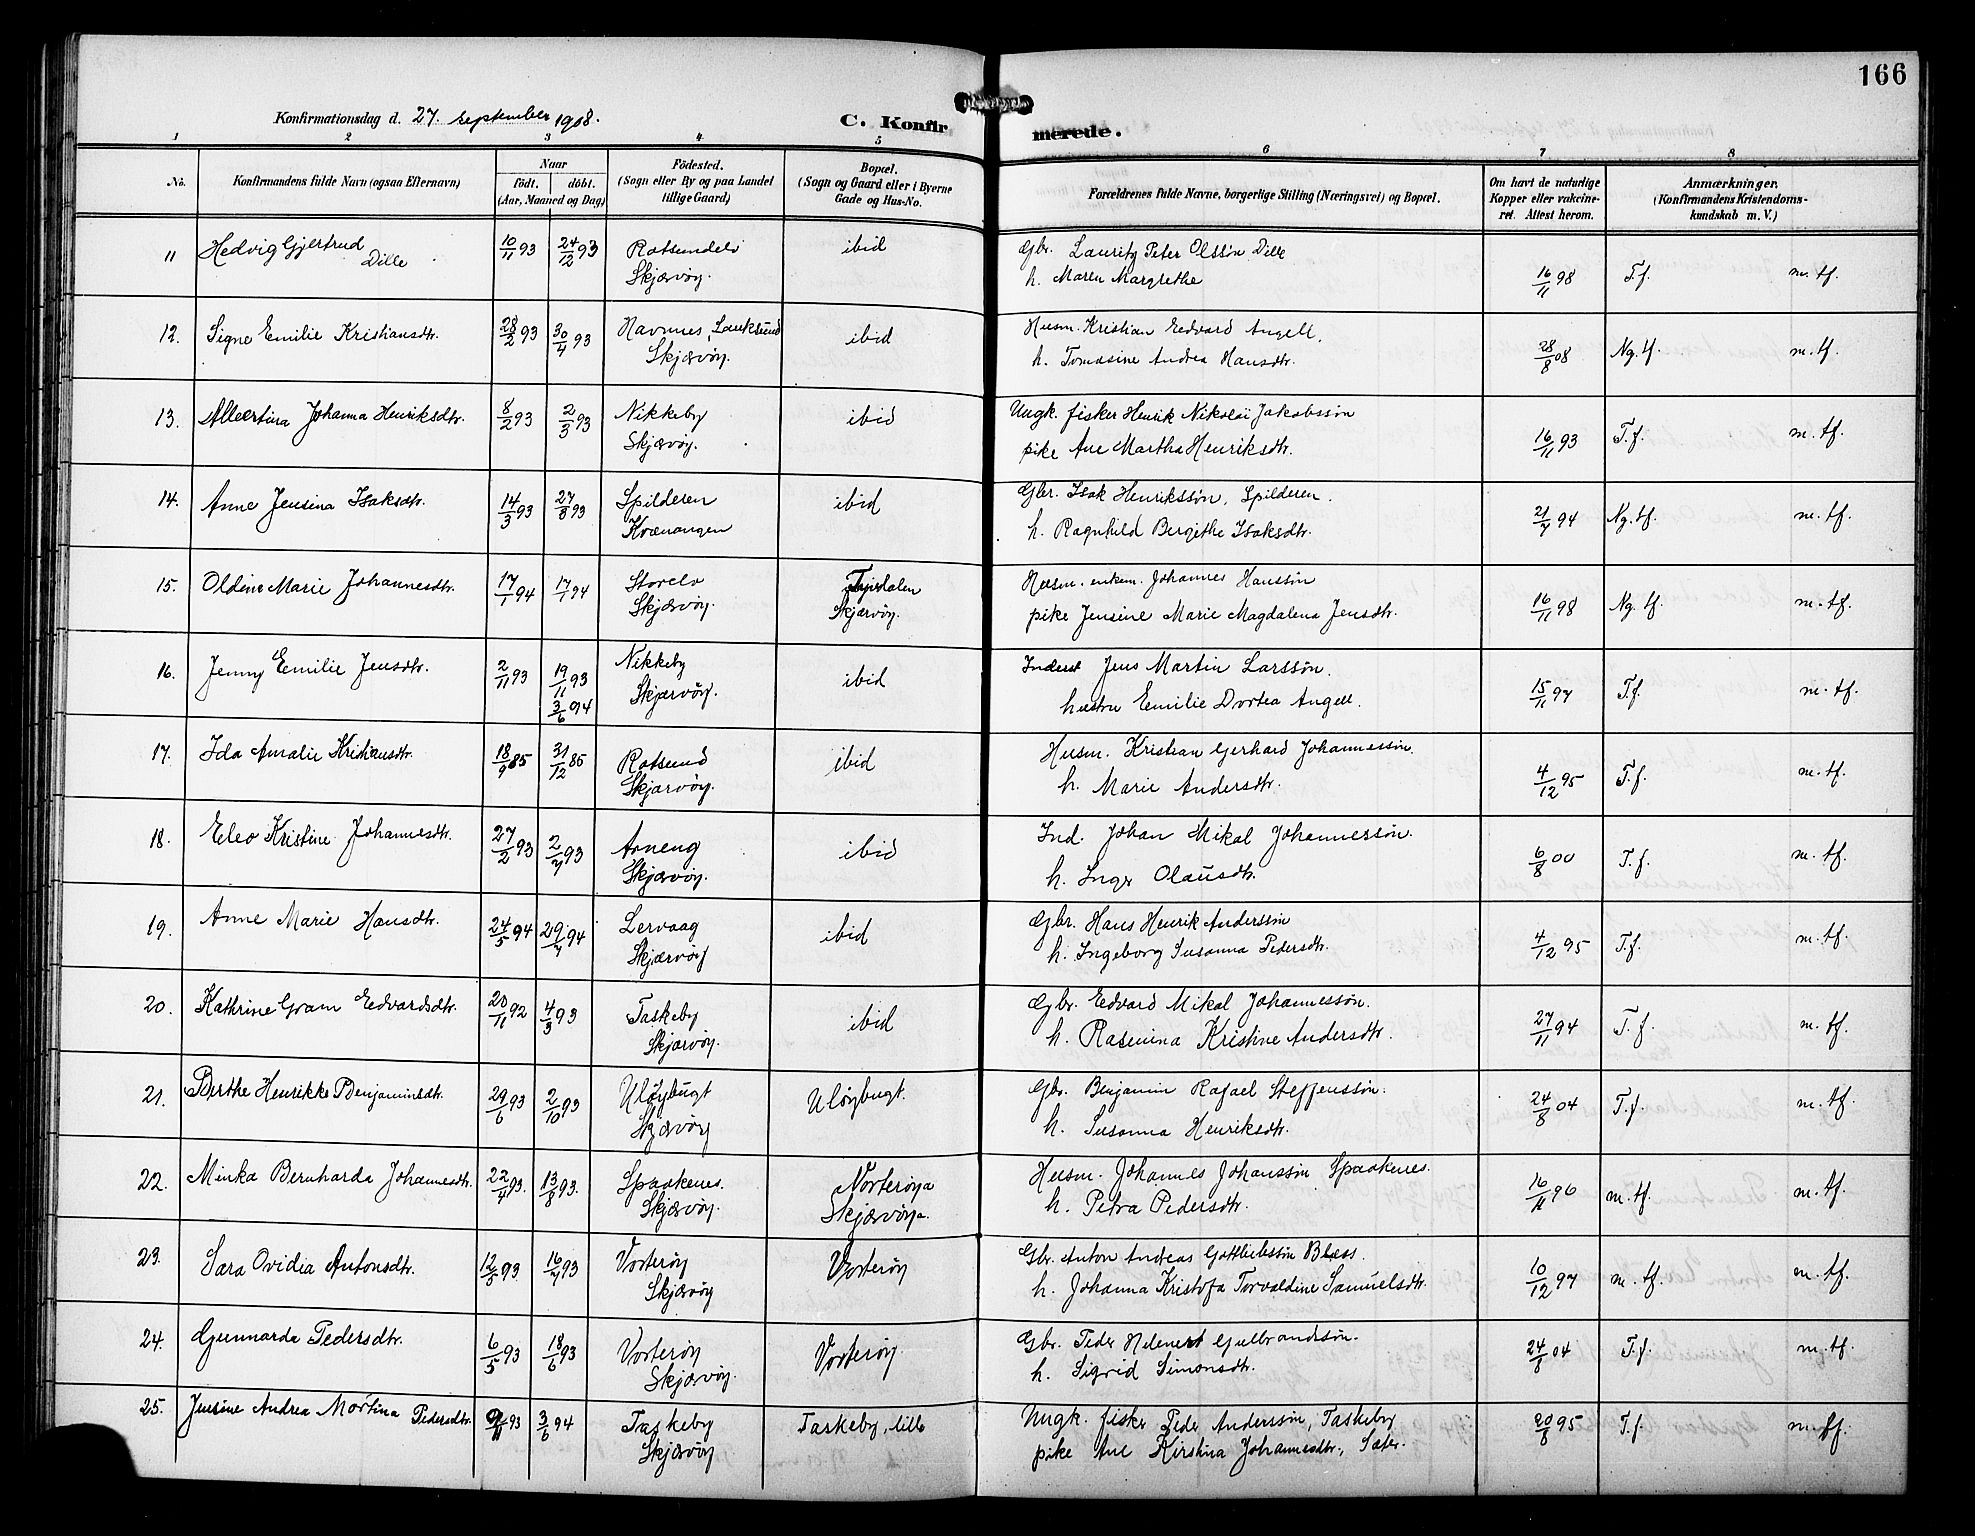 166
Konfirmationsdag d. 27. september 1908.
C. Konfirmerede.
1 2 3 4 5 6 7 8
No.
Konfirmandens fulde Navn (ogsaa Efternavn)
Naar
født. døbt.
(Aar, Maaned og Dag)
Födested.
(Sogn eller By og paa Landet
tillige Gaard)
Bopæl.
(Sogn og Gaard eller i Byerne
Gade og Hus-No.
Forældrenes fulde Navne, borgerlige Stilling (Næringsvei) og Bopæl.
Om havt de naturlige
Kopper eller vakcine-
ret. Attest herom.
Anmærkninger.
(Konfirmandens Kristendoms-
kundskab m. V.)
11 Hedvig Gjertrud Dille 10/11 93 24/12 93 Rotsundelv Skjærvöy. ibid
Gbr. Lauritz Peter Olssön Dille
h. Maren Margrethe 16/11 98 T.f. m. tf.
12. Signe Emilie Kristiansdtr. 28/2 93 30/4 93 Havnnes, Lauksund Skjærvöy. ibid
Husm. Kristian Edvard Angell.
h. Tomasine Andrea Hansdtr. 28/8 08 Ng. tf. m. tf.
13. Albertina Johanna Henriksdtr. 8/2 93 2/3 93 Nikkeby Skjærvöy. ibid
Ungk. fisker Henrik Nikolai Jakobssön
pike Ane Martha Henriksdtr. 16/11 93 T.f. m. tf.
14. Anne Jensina Isaksdtr. 14/3 93 27/8 93 Spilderen Kvænangen ibid
Gbr. Isak Henrikssön, Spilderen.
h. Ragnhild Bergithe Isaksdtr. 21/7 94 Ng. tf. m. tf.
15. Oldine Marie Johannesdtr. 17/1 94 17/1 94 Storelv Skjærvöy. Skjærvöy.
Husm. enkem. Johannes Hanssön
pike Jensine Marie Magdalena Jensdtr. 16/11 98 Ng. tf. m. tf.
16. Jenny Emilie Jensdtr. 2/11 93 19/11 93 3/6 94 Nikkeby Skjærvöy. ibid
Inderst Jens Martin Larssön.
hustru Emilie Dortea Angell. 15/11 97 T.f. m. tf.
17. Ida Amalie Kristiansdtr. 18/9 85 31/12 85 Rotsund Skjærvöy. ibid
Husm. Kristian Gerhard Johannessön.
h. Marie Andersdtr. 4/12 95 T.f. m. tf.
18. Elev Kristine Johannesdtr. 27/2 93 2/7 93 Arneng Skjærvöy. ibid
Ind. Johan Mikal Johannessön.
h. Inger Olausdtr. 6/8 00 T.f. m. tf.
19. Anne Marie Hansdtr. 24/5 94 29/7 94 Lervaag Skjærvöy ibid
Gbr. Hans Henrik Anderssön
h. Ingeborg Susanna Pedersdtr. 4/12 95 T.f. m. tf.
20. Kathrine Gram Edvardsdtr. 20/11 92 4/3 93 Taskeby Skjærvöy. ibid
Gbr. Edvard Mikal Johannessön.
h. Rasmina Kristine Andersdtr. 27/11 94 T.f. m. tf.
21. Berthe Henrikke Benjaminsdtr. 29/6 93 2/10 93 Ulöybugt Skjærvöy Ulöybugt.
Gbr. Benjamin Rafael Steffenssön.
h. Susanna Henriksdtr. 24/8 04 T.f. m. tf.
22. Minka Bernharda Johannesdtr. 22/4 93. 13/8 93. Spaakenes. Skjærvöy. Vorteröya Skjærvöya.
Husm. Johannes Johanssön Spaakenes.
h. Petra Pedersdtr. 16/11 96 m. tf. m. tf.
23. Sara Ovidia Antonsdtr. 12/5 93 16/7 93 Vorteröy Skjærvöy Vorteröy
Gbr. Anton Andreas Gottliebssön Bless.
h. Johanna Kristofa Torvaldine Samuelsdtr. 10/12 97 m. tf. m. tf.
24. Gunnarda Pedersdtr. 6/5 93 18/6 93 Vorteröy Skjærvöy. Vorteröy.
Gbr. Peder Helmert Gulbrandsön.
h. Sigrid Simonsdtr. 24/8 04 T.f. m. tf.
25. Jensine Andrea Mortina Pedersdtr. 93 3/6 94 Taskeby Skjærvöy Taskeby, lille
Ungk. fisker Peder Anderssön, Taskeby
pike Ane Kirstina Johannesdtr., Sæter. 20/8 95 T.f. m. tf.